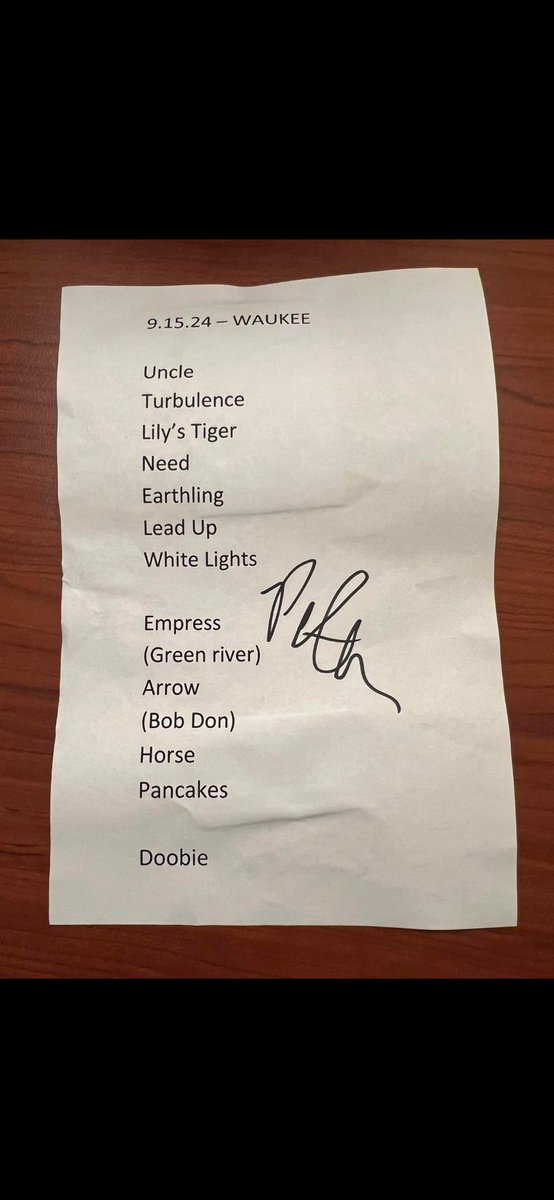 9.15.24 – WAUKEE
Uncle
Turbulence
Lily's Tiger
Need
Earthling
Lead Up
White Lights
Empress
(Green river)
Arrow
(Bob Don)
Horse
Pancakes
Doobie